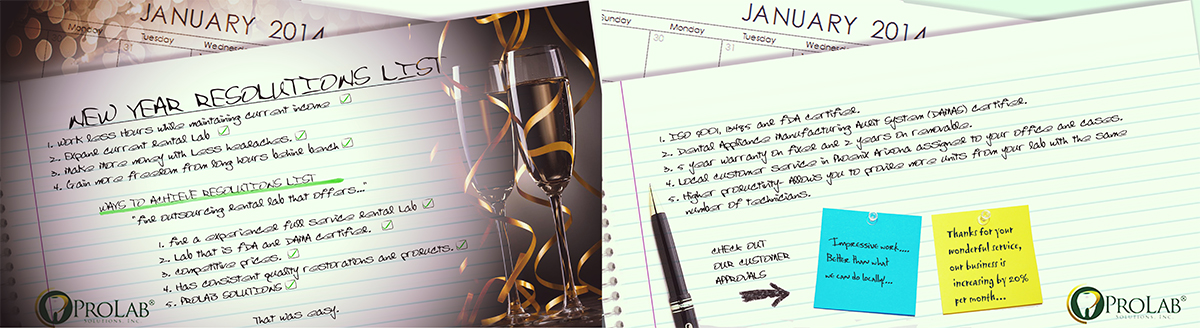 JANUARY 2014
Monday Tuesday Wednesday
30 31
NEW YEAR RESOLUTIONS LIST
1. Work less Hours while maintaining current income
2. Expand current Dental Lab
3. Make more money with Less headaches.
4. Gain more freedom from long hours behind bench
WAYS TO ACHIEVE RESOLUTIONS LIST
"find outsourcing Dental lab that offers..."
1. find a experienced full service Dental Lab
2. Lab that is FDA and DAMA certified.
3. Competitive prices.
4. Has consistent quality restorations and products.
5. PROLAB SOLUTIONS
That was easy.
PROLAB®
SOLUTIONS, INC
JANUARY 2014
Sunday Monday Tuesday Wednesday
30 31
1. ISO 9001, 13485 and FDA certified.
2. Dental Appliance Manufacturing Audit System (DAMAS) certified.
3. 5 year warranty on fixed and 2 years on removable.
4. Local customer service in Phoenix Arizona assigned to your office and cases.
5. Higher productivity- Allows you to provide more units from your lab with the same
number of technicians.
CHECK OUT
OUR CUSTOMER
APPROVALS
Impressive work....
Better than what
we can do locally...
Thanks for your
wonderful service,
our business is
increasing by 20%
per month...
PROLAB®
SOLUTIONS, INC